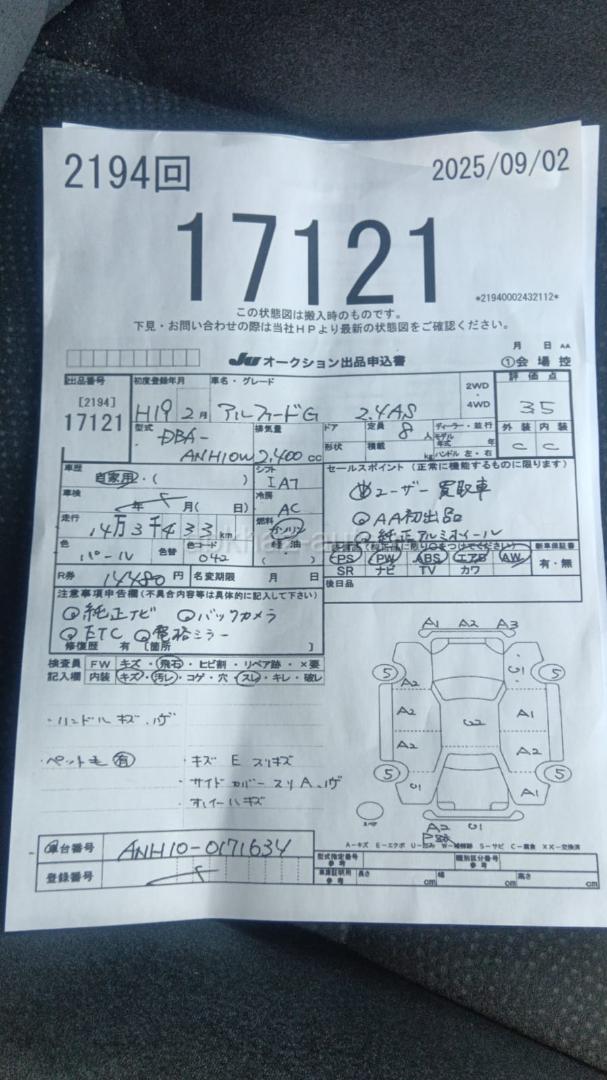 2194回
2025/09/02
17121
*21940002432112*
この状態図は搬入時のものです。
下見・お問い合わせの際は当社HPより最新の状態図をご確認ください。
月 日 AA
JU オークション出品申込書
①会場控
出品番号
[2194]
17121
初度登録年月
H19 2月
車名・グレード
アルファードG 2.4AS
2WD・4WD
評価点
3.5
型式
DBA-
ANH10W
排気量
2,400cc
ドア
形状
定員 8人
積載 kg
ディーラー・並行
モデル年式 年
ハンドル 左・右
外装 内装
C C
車歴
自家用・( )
シフト
IAT
車検
年 月( 日)
冷房
AC
走行
14万3千433km
燃料
ガソリン
軽油
( )
色
パール
色替
色コード
042
R券
14480円
名変期限 月 日
セールスポイント(正常に機能するものに限ります)
ユーザー買取車
AA初出品
純正アルミホイール
PS PW ABS エアB AW
SR ナビ TV カワ
新車保証書
有・無
後日品
注意事項申告欄(不具合内容等は具体的に記入して下さい)
純正ナビ バックカメラ
ETC 電格ミラー
修復歴 有 [箇所 ]
検査員記入欄
FW キズ・飛石・ヒビ割・リペア跡・×要
内装 キズ・汚レ・コゲ・穴・スレ・キレ・破レ
・ハンドルキズ、ハゲ
・ペット毛 有
・キズ E スリキズ
・サイドカバースリA、ハゲ
A1 A2 A3
5 5
A2
A2 A1
G2
A2 A2
5 5
A1
A2
A-キズ E-エクボ U-凹み W-補修跡 S-サビ C-腐食 XX-交換済
車台番号
ANH10-0171634
登録番号
型式指定番号
参考
類別区分番号
参考
車庫証明用
参考
長さ cm
幅 cm
高さ cm